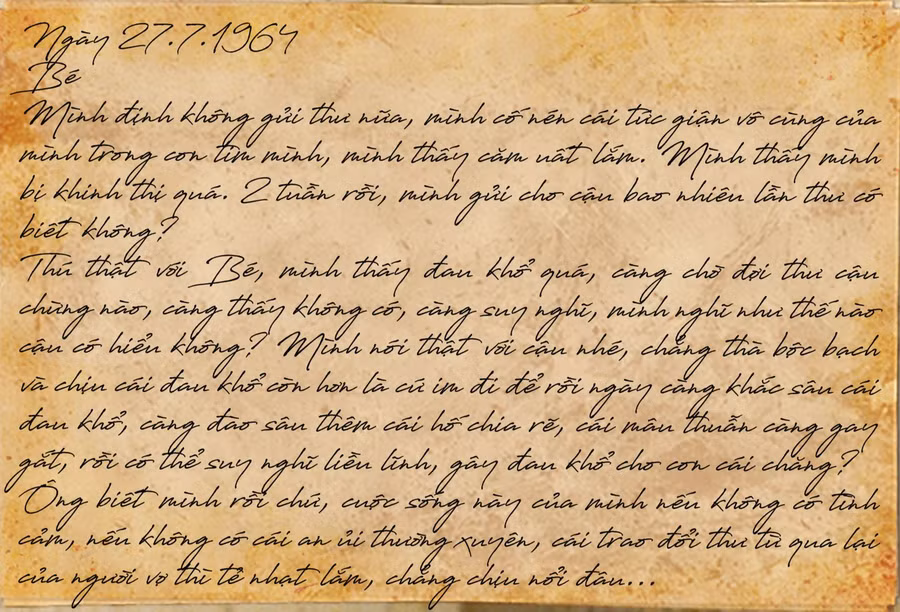 Ngày 27.7.1964
Bé
Mình định không gửi thư nữa, mình cố nén cái tức giận vô cùng của
mình trong con tim mình, mình thấy căm uất lắm. Mình thấy mình
bị khinh thị quá. 2 tuần rồi, mình gửi cho cậu bao nhiêu lần thư có
biết không?
Thú thật với Bé, mình thấy đau khổ quá, càng chờ đợi thư cậu
chừng nào, càng thấy không có, càng suy nghĩ, mình nghĩ như thế nào
cậu có hiểu không? Mình nói thật với cậu nhé, chẳng thà bộc bạch
và chịu cái đau khổ còn hơn là cứ im đi để rồi ngày càng khắc sâu cái
đau khổ, càng đào sâu thêm cái hố chia rẽ, cái mâu thuẫn càng gay
gắt, rồi có thể suy nghĩ liều lĩnh, gây đau khổ cho con cái chăng?
Ông biết mình rồi chứ, cuộc sống này của mình nếu không có tình
cảm, nếu không có cái an ủi thường xuyên, cái trao đổi thư từ qua lại
của người vợ thì tẻ nhạt lắm, chẳng chịu nổi đâu...